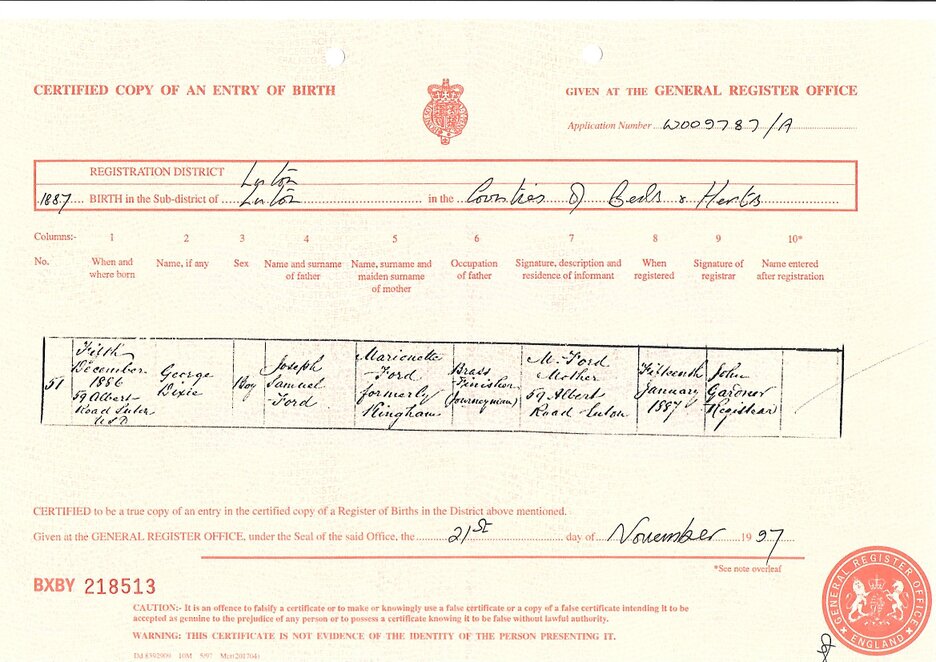 CERTIFIED COPY OF AN ENTRY OF BIRTH
GIVEN AT THE GENERAL REGISTER OFFICE
Application Number W009787/A
REGISTRATION DISTRICT Luton
1887 BIRTH in the Sub-district of Luton in the Counties of Beds & Herts
Columns:- 1 2 3 4 5 6 7 8 9 10*
No. When and where born Name, if any Sex Name and surname of father Name, surname and maiden surname of mother Occupation of father Signature, description and residence of informant When registered Signature of registrar Name entered after registration
51
Fifth
December
1886
59 Albert
Road Luton
USD
George
Dixie
Boy
Joseph
Samuel
Ford
Marionette
Ford
formerly
Kingham
Brass
Finisher
(Journeyman)
M. Ford
Mother
59 Albert
Road Luton
Fifteenth
January
1887
John
Gardner
Registrar
CERTIFIED to be a true copy of an entry in the certified copy of a Register of Births in the District above mentioned.
Given at the GENERAL REGISTER OFFICE, under the Seal of the said Office, the 21st day of November 1997
*See note overleaf
BXBY 218513
CAUTION:- It is an offence to falsify a certificate or to make or knowingly use a false certificate or a copy of a false certificate intending it to be
accepted as genuine to the prejudice of any person or to possess a certificate knowing it to be false without lawful authority.
WARNING: THIS CERTIFICATE IS NOT EVIDENCE OF THE IDENTITY OF THE PERSON PRESENTING IT.
GENERAL REGISTER OFFICE
ENGLAND